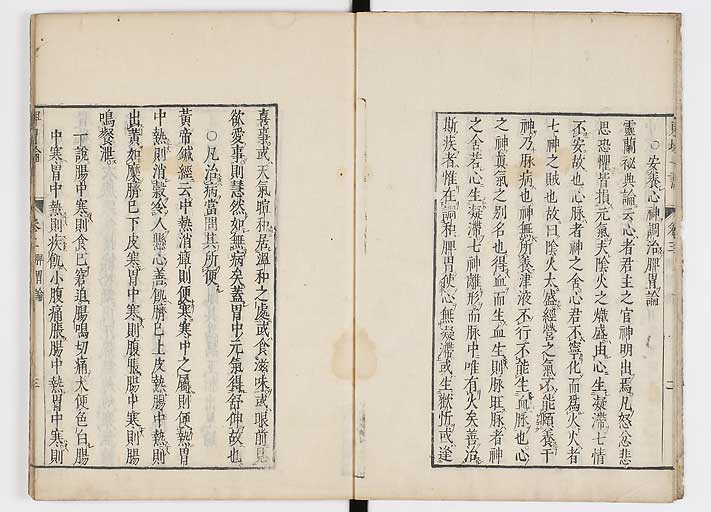 ○安養心神調治脾胃論
靈蘭祕典論云心者君主之官神明出焉凡怒忿悲
思恐懼皆損元氣夫陰火之熾盛由心生凝滯七情
不安故也心脉者神之舍心君不寧化而爲火火者
七神之賊也故曰陰火太盛經營之氣不能頤養于
神乃脉病也神無所養津液不行不能生血脉也心
之神眞氣之別名也得血而生血生則脉旺脉者神
之舍若心生凝滯七神離形而脉中唯有火矣善治
斯疾者惟在調和脾胃使心無凝滯或生歡忻或逢
喜事或天氣暄和居溫和之處或食滋味或眼前見
欲愛事則慧然如無病矣蓋胃中元氣得舒伸故也
○凡治病當問其所便
黃帝鍼經云中熱消癉則便寒寒中之屬則便熱胃
中熱則消穀令人懸心善飢臍巳上皮熱腸中熱則
出黃如糜臍巳下皮寒胃中寒則腹脹腸中寒則腸
鳴飧泄
一說腸中寒則食巳窘迫腸鳴切痛大便色白腸
中寒胃中熱則疾飢小腹痛脹腸中熱胃中寒則
卷二 脾胃論
三